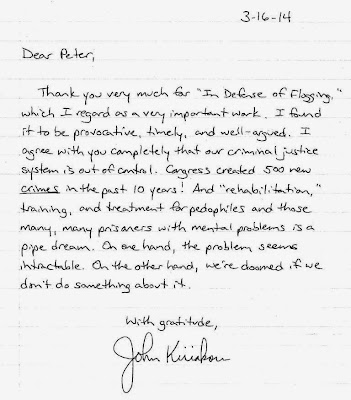 3-16-14
Dear Peter,
Thank you very much for "In Defense of Flogging,"
which I regard as a very important work. I found
it to be provocative, timely, and well-argued. I
agree with you completely that our criminal justice
system is out of control. Congress created 500 new
crimes in the past 10 years! And "rehabilitation,"
training, and treatment for pedophiles and those
many, many prisoners with mental problems is a
pipe dream. On one hand, the problem seems
intractable. On the other hand, we're doomed if we
don't do something about it.
With gratitude,
John Kiriakou